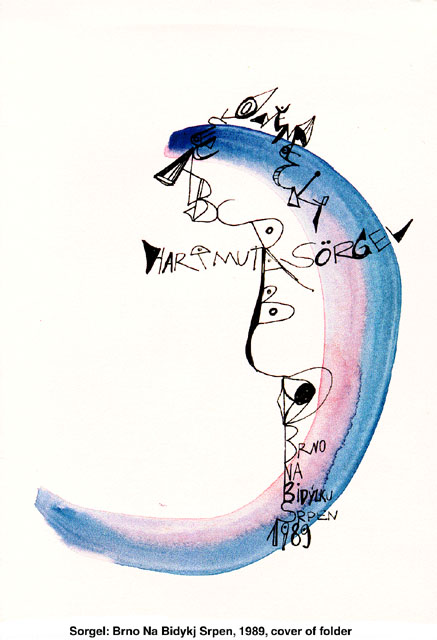 ABC
HARTMUT SÖRGEL
BRNO
NA
BIDÝLKU
SRPEN
1989
Sorgel: Brno Na Bidykj Srpen, 1989, cover of folder